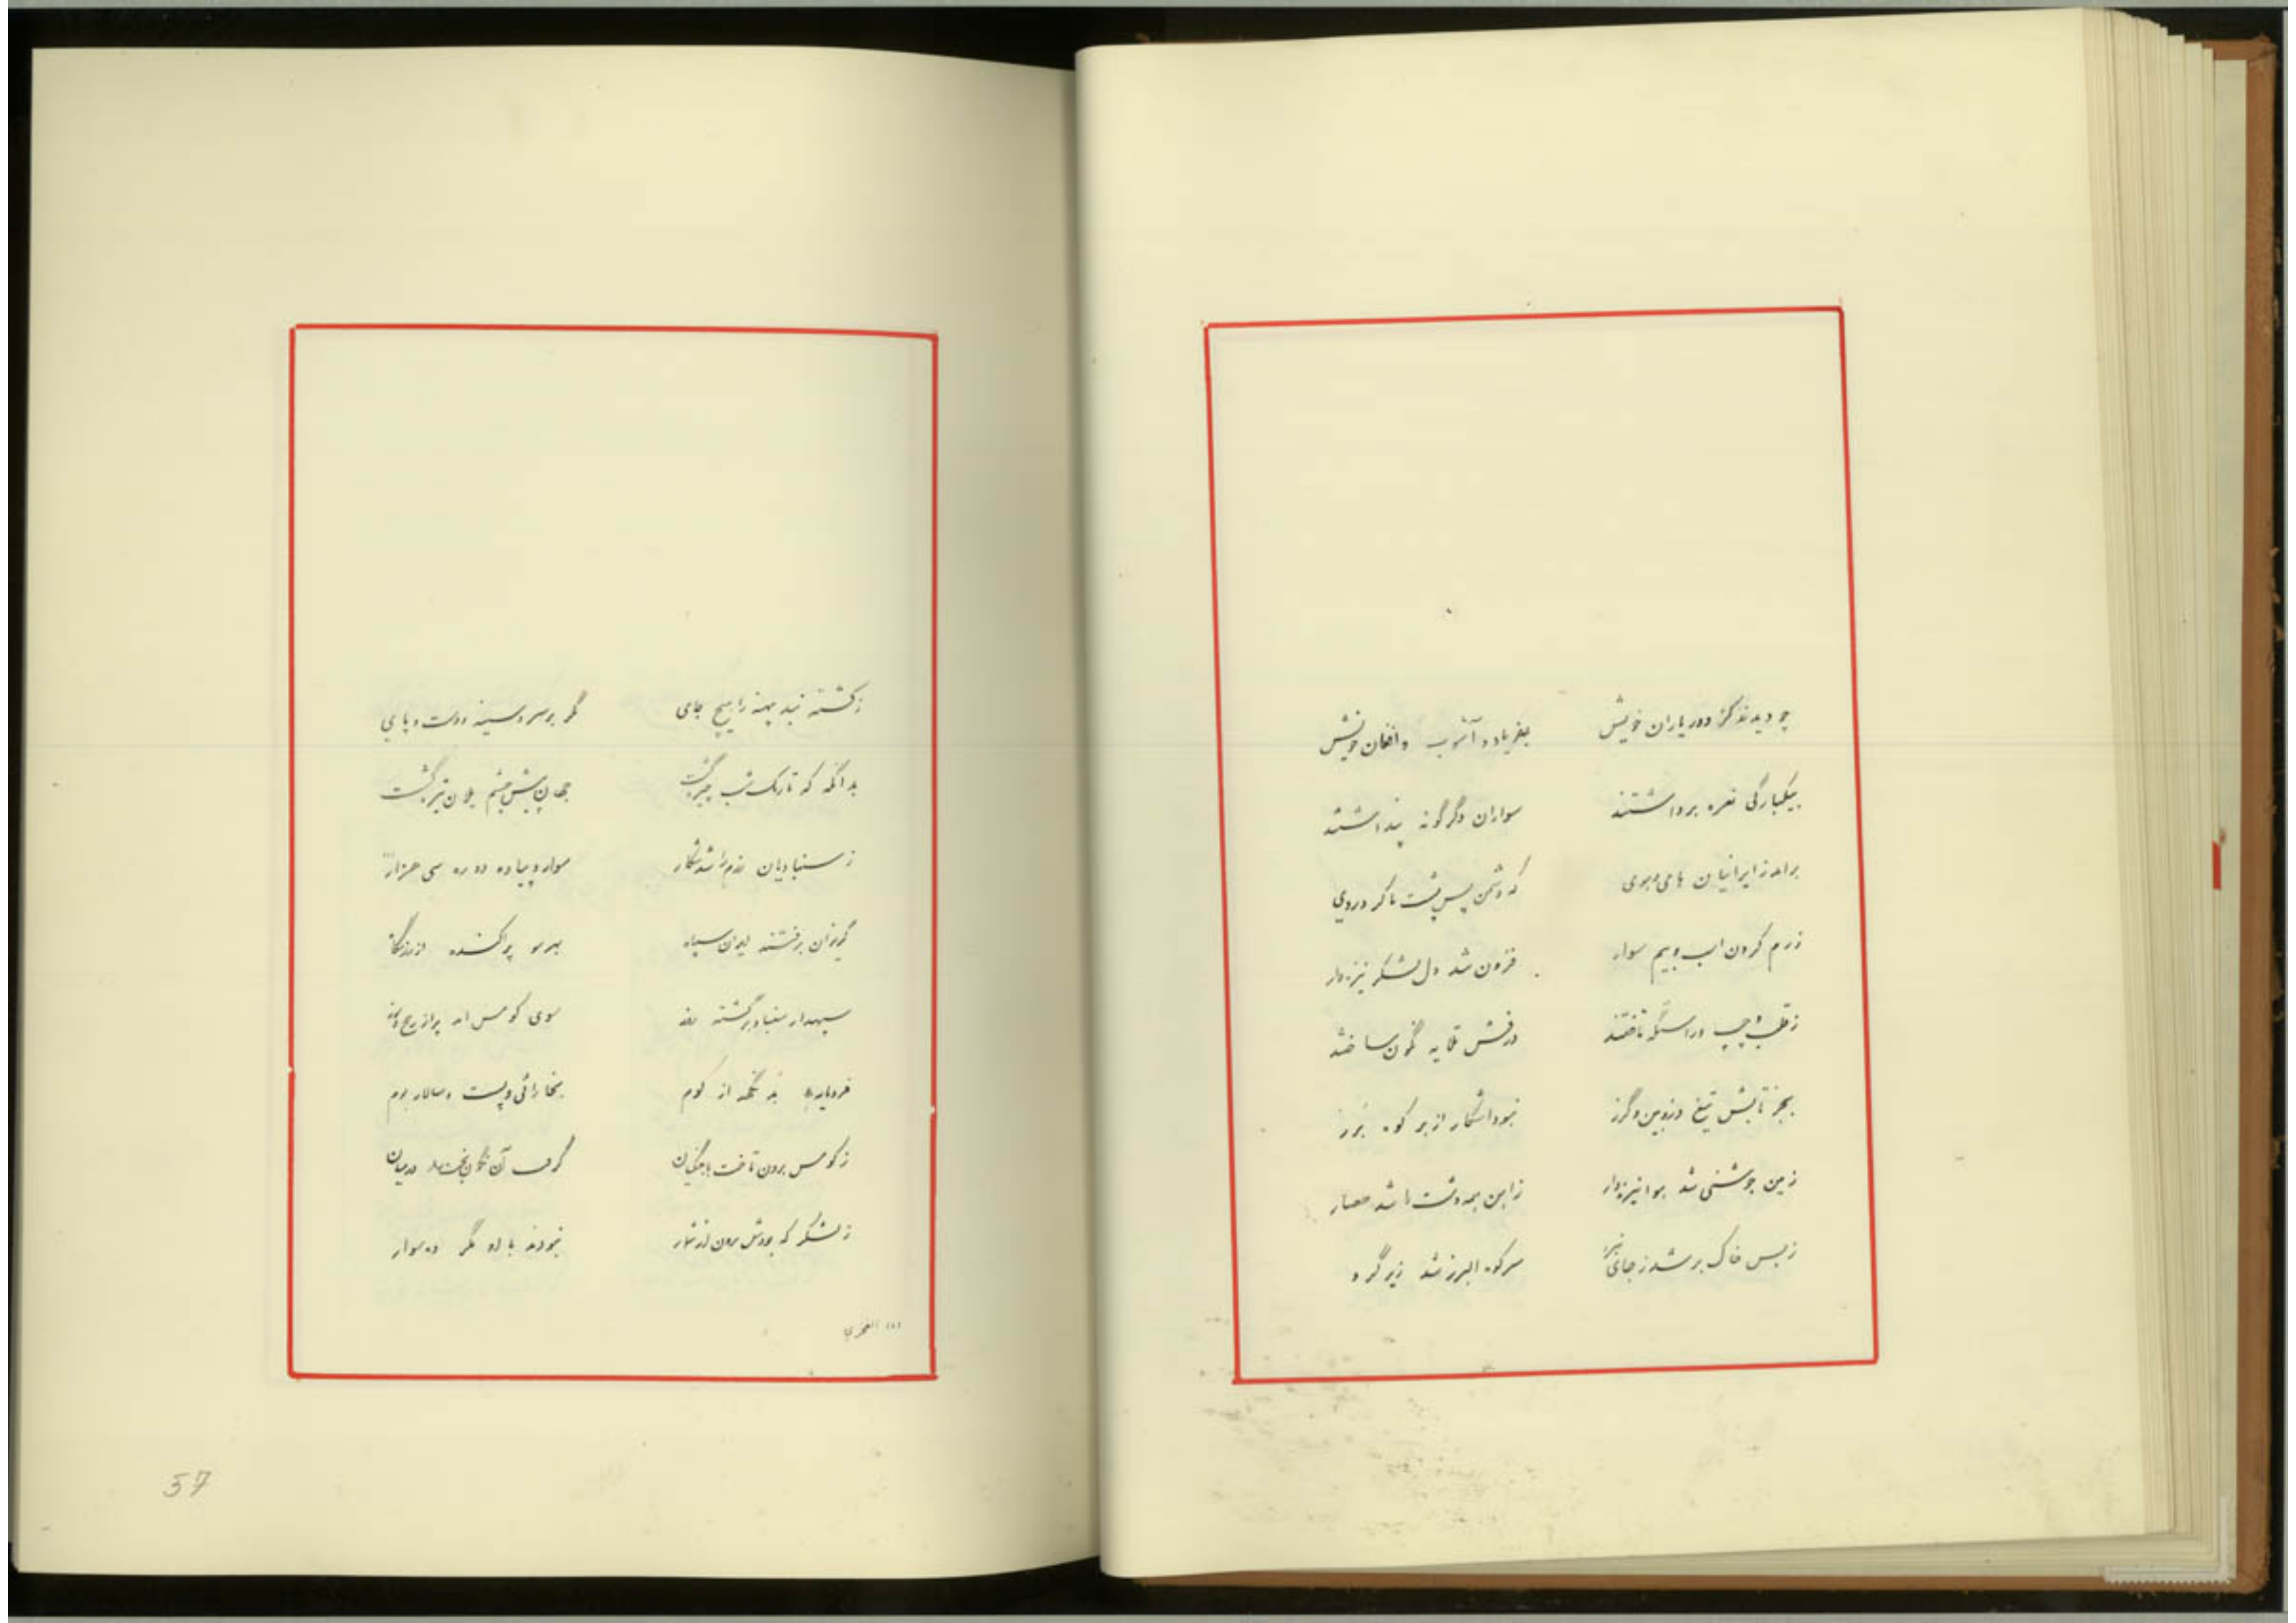 چو دیدند کز دور یاران خویش    بفریاد و آشوب و افغان خویش
بیکبارگی نعره برداشتند    سواران دگرگونه پنداشتند
برامد ز ایرانیان های و هوی    که دشمن پس پشت ما کرد روی
ز رم کردن اسب و بیم سوار    فزون شد دل لشکر نیزه‌دار
ز قلب و چپ و راست که تاختند    درفش طلایه نگون ساختند
بجز تابش تیغ و زوبین و گرز    نبود اشکار از بر کوه برز
زمین جوشنی شد هوا نیزه‌دار    ز آهن همه دشت شد حصار
ز بس خاک بر شد ز جای نبرد    سر کوه البرز شد زیر گرد
ز کشته نبد پهنه را هیچ جای    مگر بر سر و سینه و دست و پای
بدانگه که تارک شب چیره گشت    جهان پیش چشم یلان تیره گشت
ز سنبادیان رزم را شد شکار    سوار و پیاده دو ره سی هزار
گریزان برفتند ایران سپاه    بهر سو پراکنده از رزمگاه
سپهدار سنباد برگشته    سوی کومس امد پر از رنج و
فرومایه از کوم    بخارائی و پست و سالار بوم
ز کومس برون تاخت با جنگیان    گرفت آن نگون بخت را در میان
ز لشکر که بودش برون از شمار    نبودند با او مگر ده سوار
57